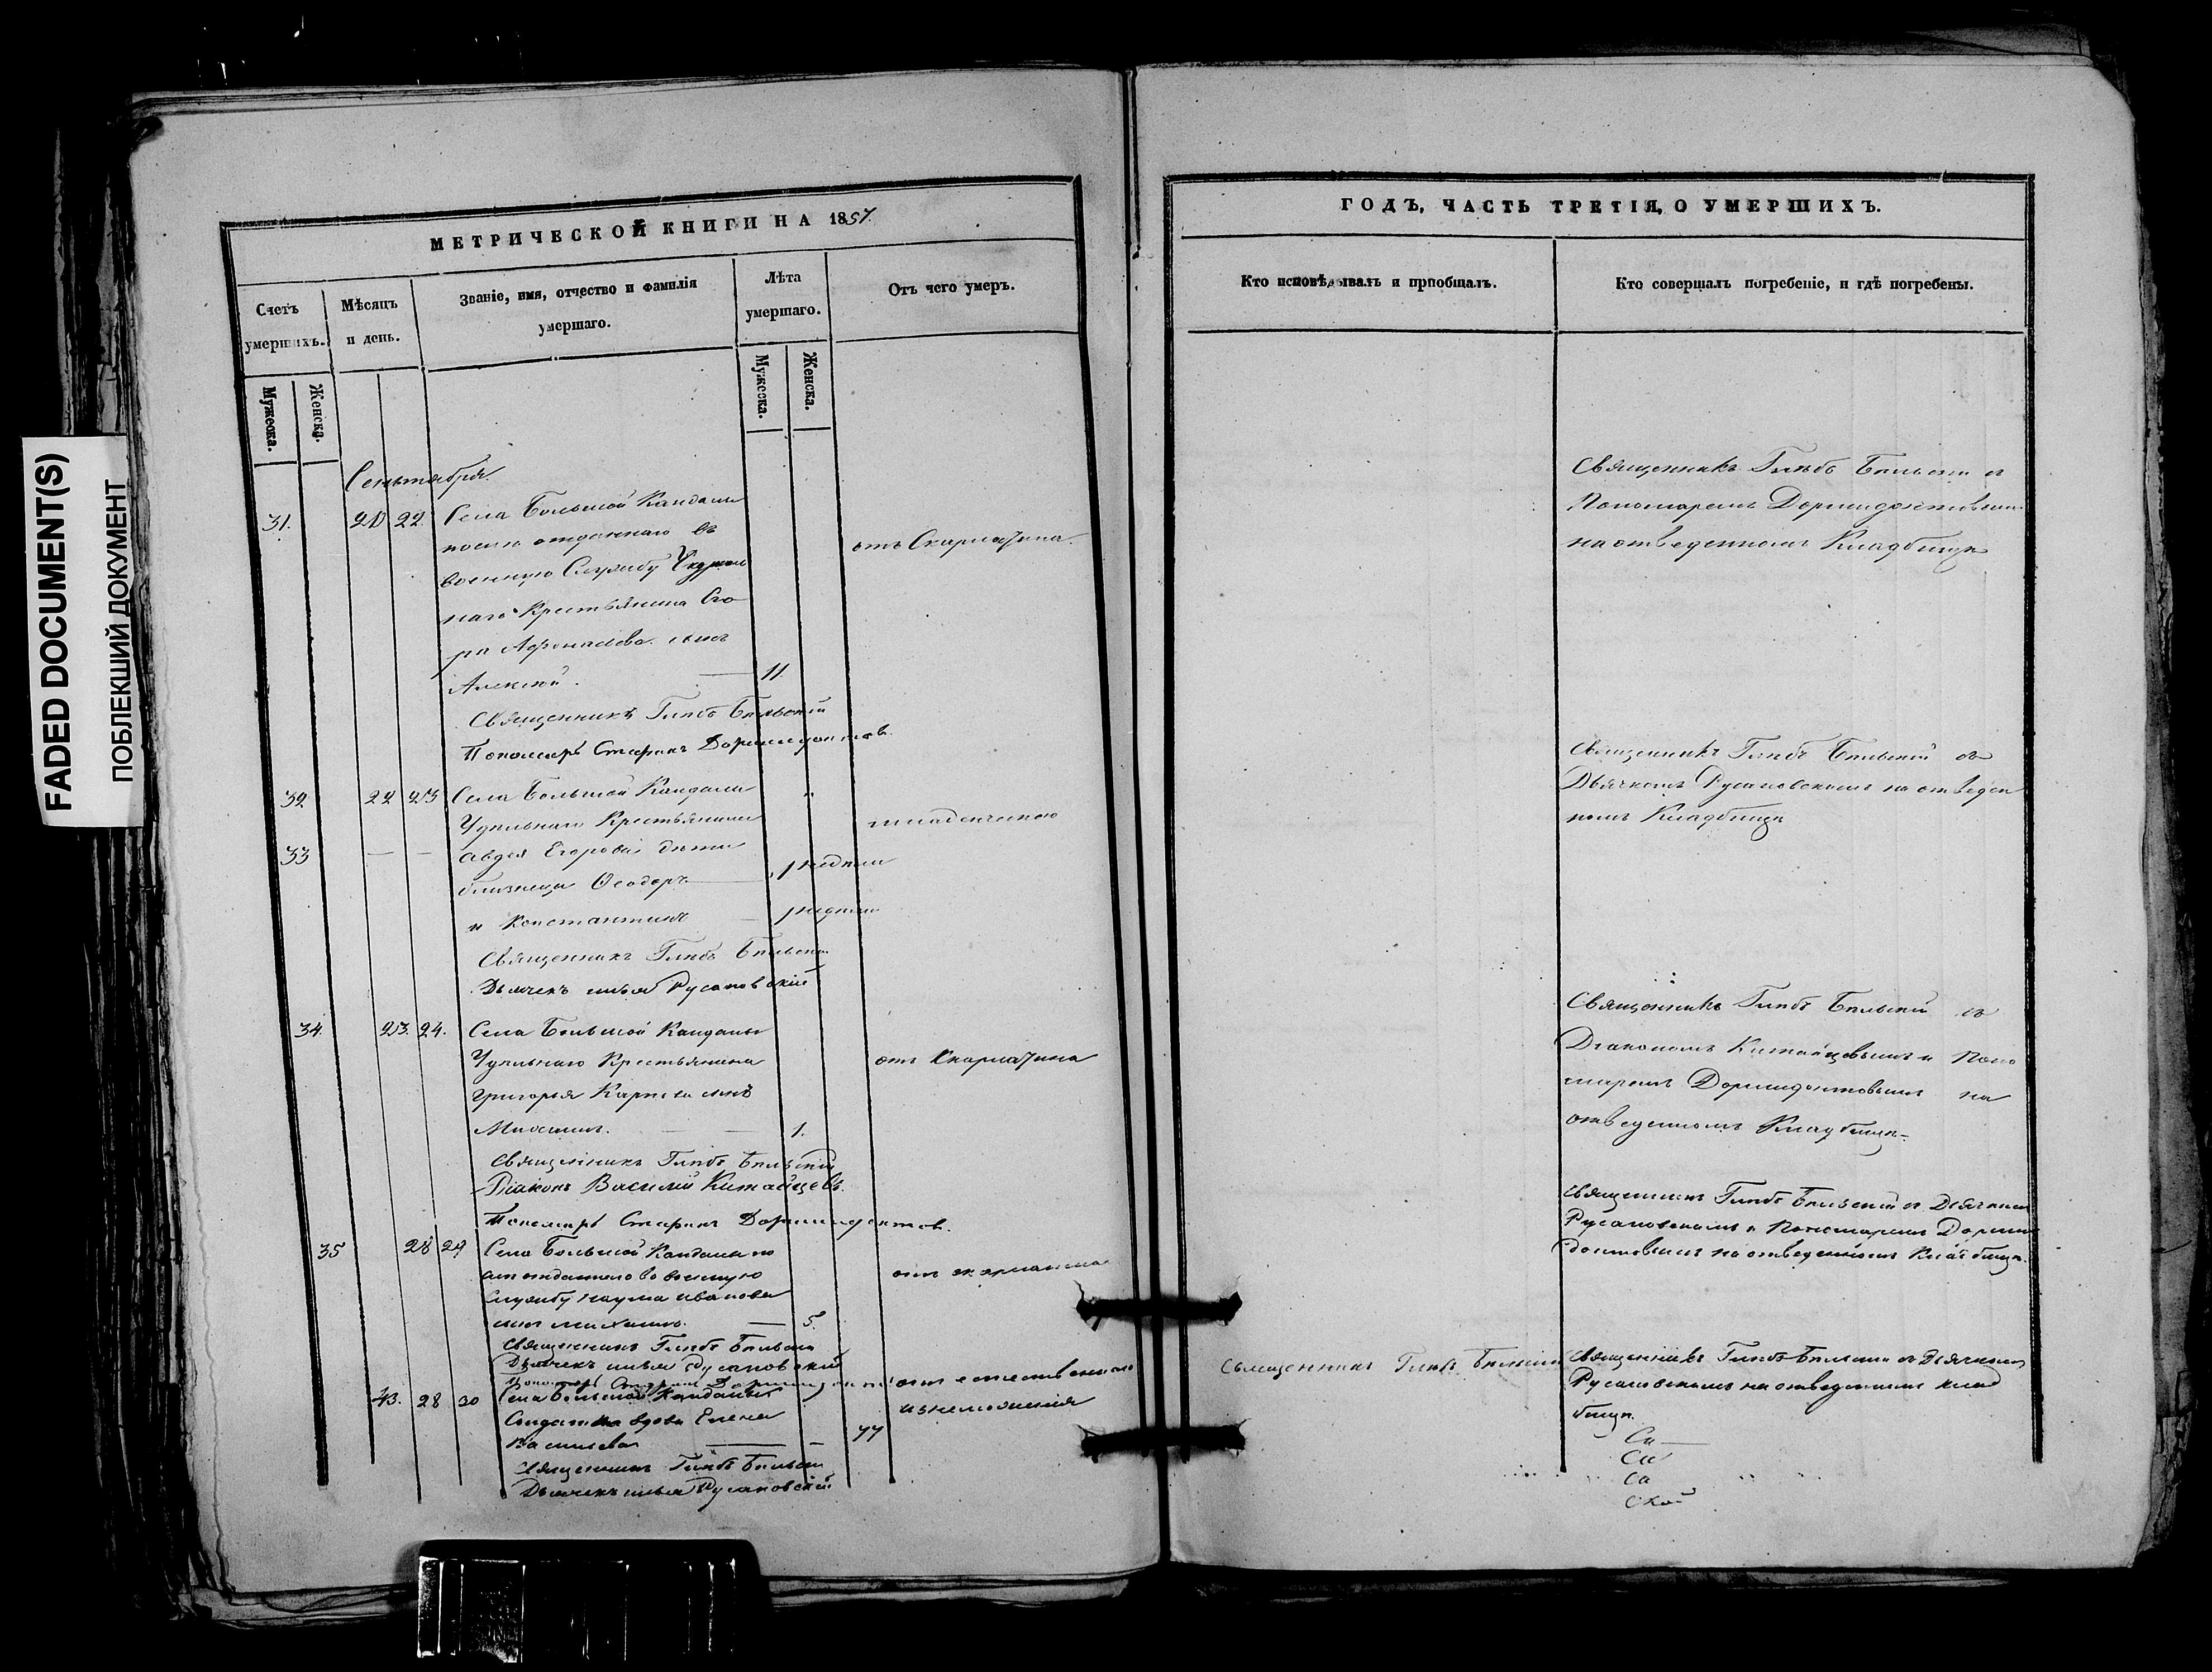 FADED DOCUMENT(S)
ПОБЛЕКШИЙ ДОКУМЕНТ
МЕТРИЧЕСКОЙ КНИГИ НА 1857.
Счетъ умершихъ.
Мужеска.
Женска.
Мѣсяцъ и день.
Званіе, имя, отчество и фамилія умершаго.
Лѣта умершаго.
Мужеска.
Женска.
Отъ чего умеръ.
Сентября.
31. 20 22 Села Большой Кандалы
после отданнаго въ
отъ Скарлатина.
военную Службу
наго Крестьянина Его
ра Афонасьева сынъ
Алексѣй. — 11.
Священникъ Глѣбъ Бѣльскій
Пономарь Стефанъ Доримедонтовъ.
32 22 23 Села Большой Кандалы
Удѣльнаго Крестьянина
младенческою
33 — — Авдея Егорова дѣти
близнецы Ѳеодоръ —
и Константинъ —
Священникъ Глѣбъ Бѣльскій
Дьячекъ Илья Русановскій
34. 23. 24. Села Большой Кандалы
Удѣльнаго Крестьянина
отъ Скарлатина
Григорья Карпова сынъ
1.
Священникъ Глѣбъ Бѣльскій
Діаконъ Василій Китайцевъ.
Пономарь Стефанъ Доримедонтов.
35 28 29 Села Большой Кандалы по
отданнаго во военную
отъ скарлатина
Службу Наума Иванова
сынъ Михаилъ. — 5.
Священникъ Глѣбъ Бѣльскій
Дьячекъ Илья Русановскій
Пономарь Стефанъ Доримедонтов
43. 28 30 Села Большой Кандалы
отъ естественнаго
Солдатка вдова Елена
изнеможения
Васильева — — 77
Священникъ Глѣбъ Бѣльскій
Дьячекъ Илья Русановскій
ГОДЪ, ЧАСТЬ ТРЕТІЯ, О УМЕРШИХЪ.
Кто исповѣдывалъ и пріобщалъ.
Кто совершалъ погребеніе, и гдѣ погребены.
Священникъ Глѣбъ Бѣльскій съ
Пономаремъ Доримедонтовымъ
на отведенномъ Кладбищѣ
Священникъ Глѣбъ Бѣльскій съ
Дьячкомъ Русановскимъ на отведен
номъ Кладбищѣ
Священникъ Глѣбъ Бѣльскій съ
Діакономъ Китайцовымъ и Поно
маремъ Доримедонтовымъ на
отведенномъ Кладбищѣ=
Священникъ Глѣбъ Бѣльскій съ Дьячкомъ
Русановскимъ и Пономаремъ Дориме
донтовымъ на отведенномъ Кладбищѣ.
Священникъ Глѣбъ Бѣльскій
Священникъ Глѣбъ Бѣльскій съ Дьячкомъ
Русановскимъ на отведенномъ клад
бищѣ.
Си
Си
Са
Ской